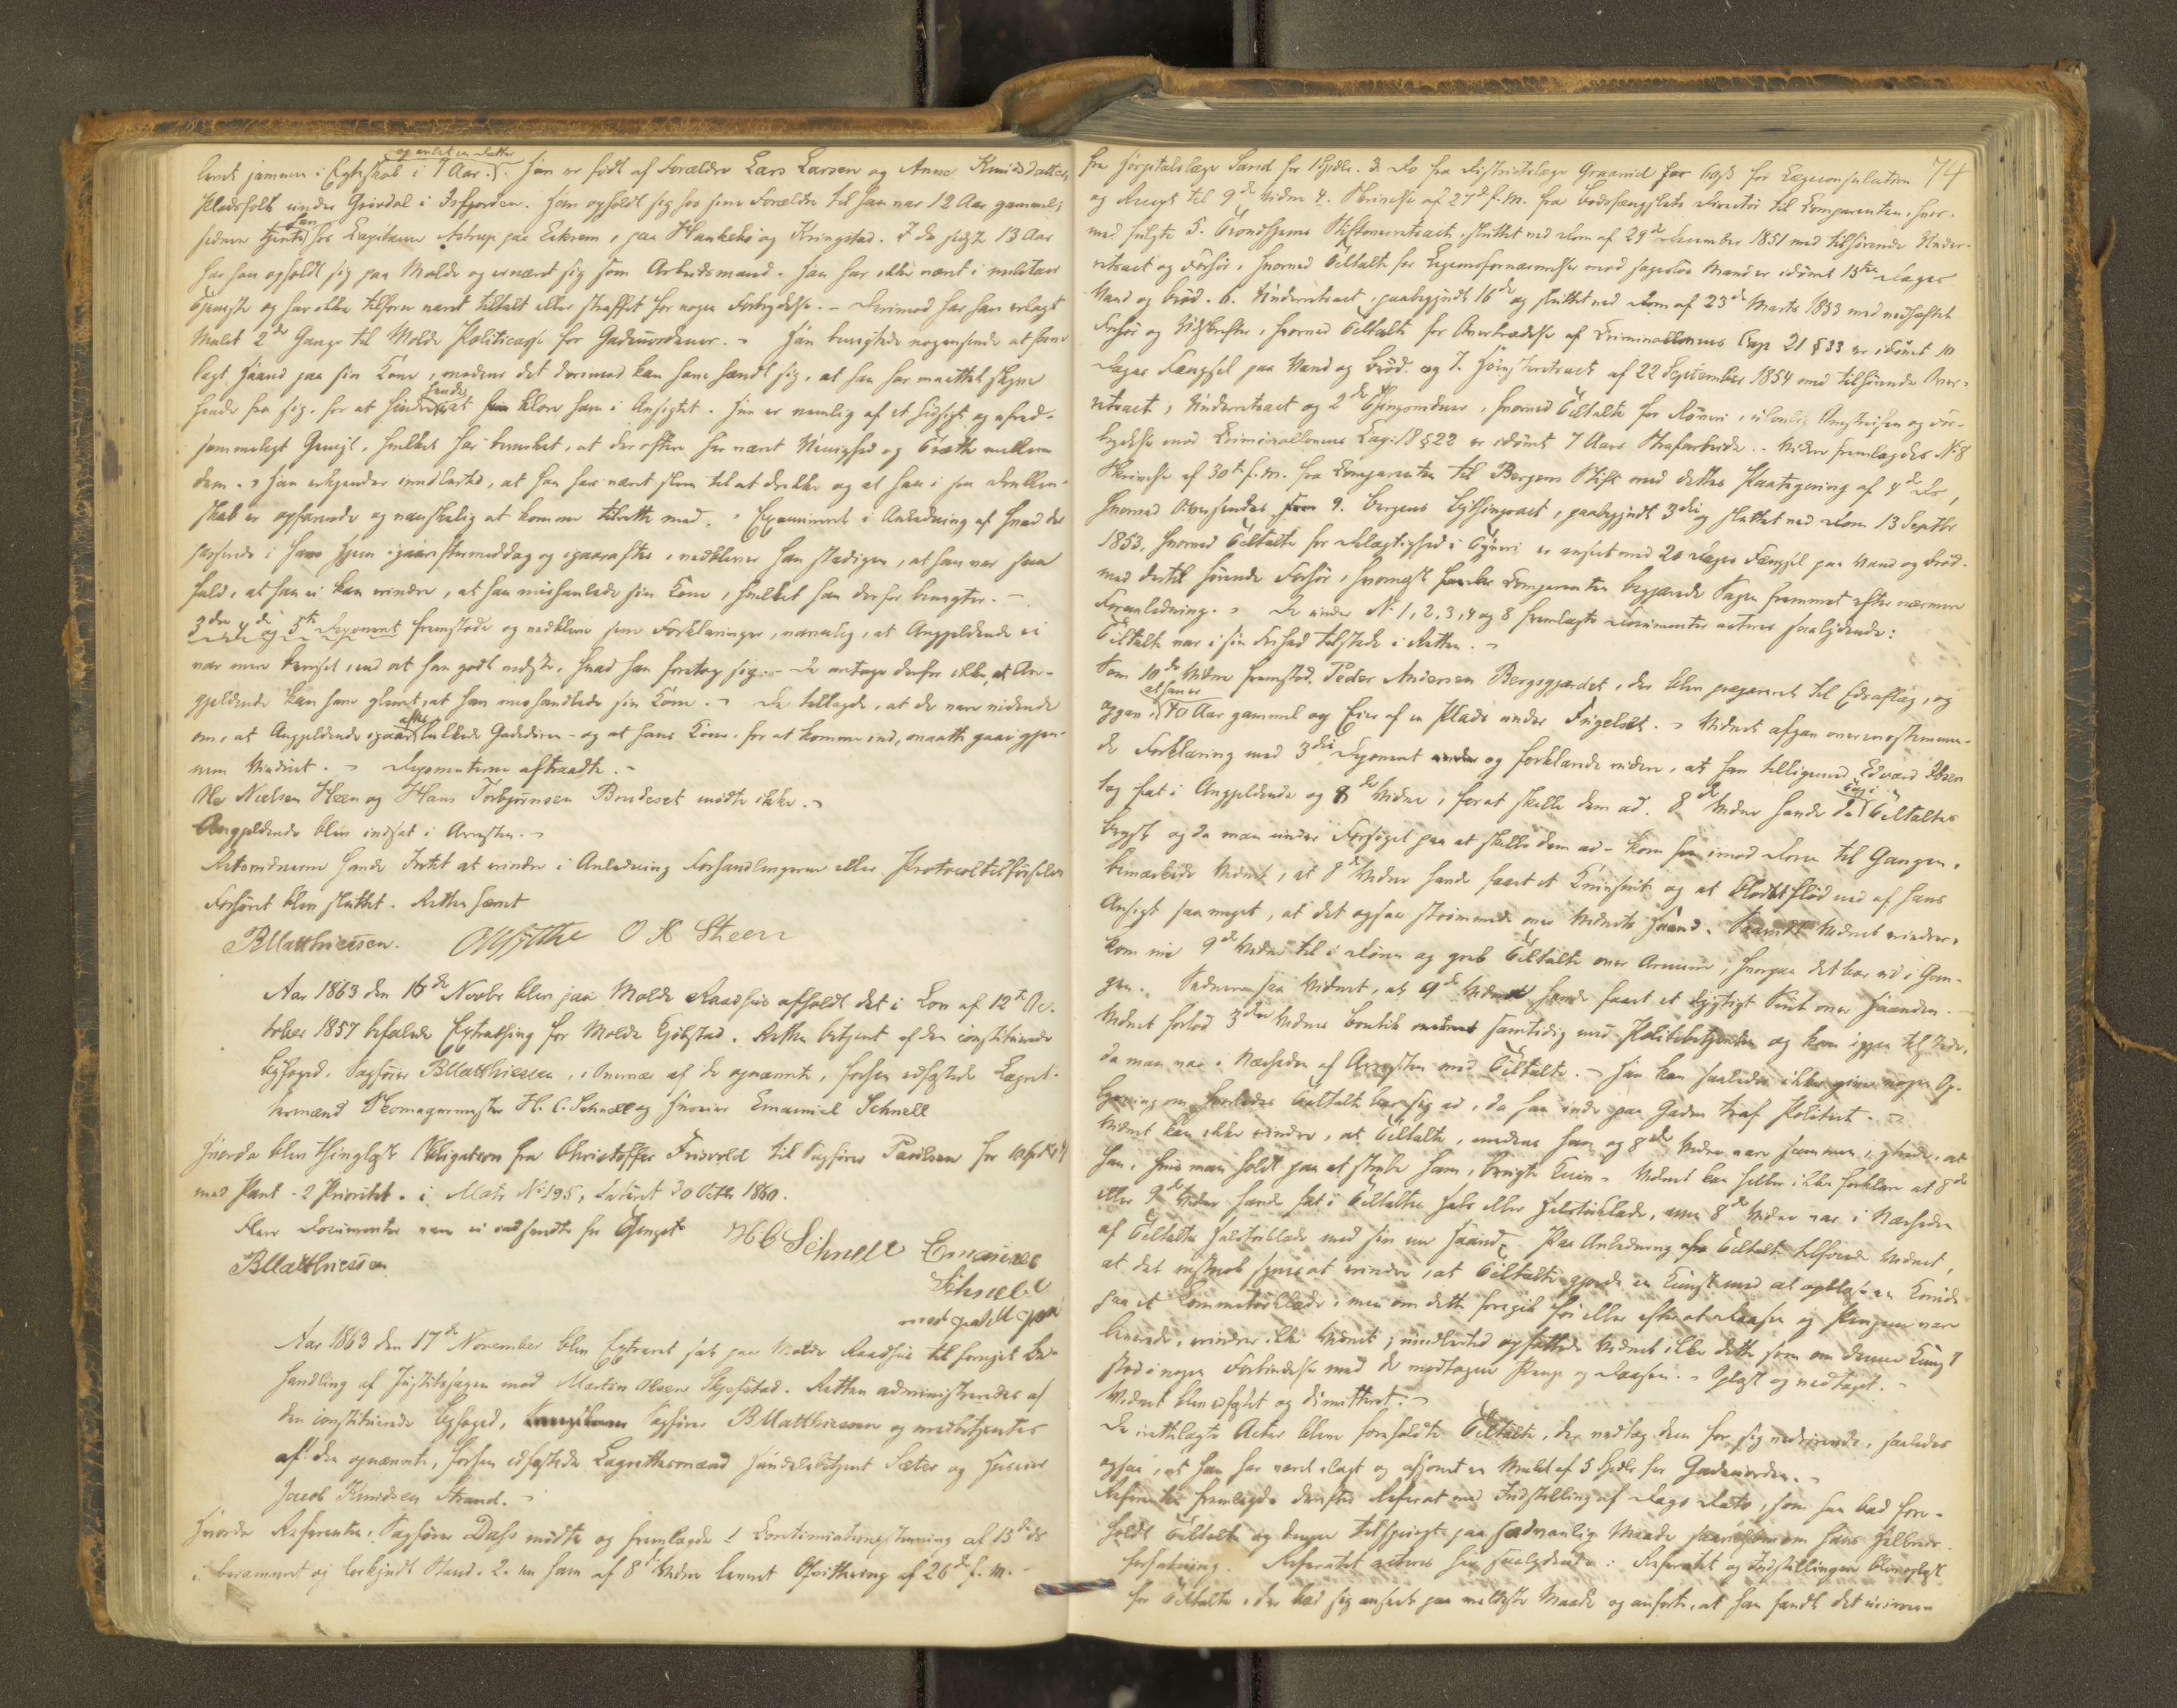 og avlet en Datter
levet sammen i Egteskab i 7 Aar. Han er født af Forældre Lars Larsen og Anne Knudsdatter
Pladsfolk under Grivdal i Isfjorden. Han opholdt sig hos sine Forældre til han var 12 Aar gammel,
siden tjente han hos Capitaine Astrup paa Eikrem, paa Haukebø og Kringstad. I de sidste 13 Aar
har han opholdt sig paa Molde og ernæret sig som Arbeidsmand. Han har ikke været i militair
Tjeneste og har ikke tilforn været tiltalt eller straffet for nogen Forbrydelse. - Derimod har han erlagt
Mulct 2de Gange til Molde Politicasse for Gadeuordener. - Han benegtede nogensinde at have
lagt Haand paa sin Kone, medens det derimod kan have hændt sig, at han har maattet skyve
hende fra sig, for at hindre hende at klore ham i Ansigtet. Hun er nemlig af et hidsigt og ufred-
sommeligt Gemyt, hvilket har bevirket, at der oftere har været Uenighed og Trætte mellem
dem. - Han erkjender imidlertid, at han har været slem til at drikke og at han i sin Drukken-
skab er opfarende og vanskelig at komme tilrette med. - Examineret i Anledning af hvad der
passerede i hans Hjem igaareftermiddag og igaaraftes, vedblev han stadigen, at han var saa
fuld, at han ei kan erindre, at han mishandlede sin Kone, hvilket han derfor benegter. -
3die 4de og 5te Deponent fremstode og vedbleve sine Forklaringer, navnlig, at Angjeldende ei
var mere beruset, end at han godt vidste, hvad han foretog sig. - De antage derfor ikke, at An-
gjeldende kan have glemt, at han mishandlede sin Kone. - De tillagde, at de vare vidende
om, at Angjeldende igaaraftes lukkede Gadedøren - og at hans Kone, for at komme ind, maatte gaae igjen-
nem Vinduet. - Deponenterne aftraadte. -
Ole Nielsen Heen og Hans Torbjørnsen Brudeset mødte ikke. -
Angjeldende blev indsat i Arresten. -
Retsvidnerne havde Intet at erindre i Anledning Forhandlingerne eller Protocoltilførselen
Forhøret blev sluttet. Retten hævet
BMatthiessen. O K Steen
Aar 1863 den 16de Novbr blev paa Molde Raadhus afholdt det i Lov af 12te Oc-
tober 1857 befalede Extrathing for Molde Kjøbstad. Retten betjent af den constituerede
Byfoged, Sagfører BMatthiessen, i Overvær af de opnævnte, forhen edfæstede Lagret-
tesmænd Skomagermester H. C. Schnell og Huuseier Emanuel Schnell
Hvorda blev thinglyst Obligation fra Christoffer Frisvold til Sagfører Paulsen for
med Pant - 2 Prioritet - i Matr No 195, dateret 30 Octbr 1860.
Flere Documenter vare ei indsendte for Thinget
BMatthiessen HC Schnell Emanuel
Schnell
med paaholt pen
Aar 1863 den 17de November blev Extraret sat paa Molde Raadhus til foreget Be-
handling af Justitssagen mod Martin Olsen Skjefstad. Retten administreredes af
den constituerede Byfoged, Sagfører BMatthiessen og medbetjentes
af den opnævnte, forhen edfæstede Lagrettesmænd Handelsbetjent Sæter og Huuseier
Jacob Knudsen Strand. -
Hvorda Referenten, Sagfører Dahs mødte og fremlagde 1 Continuationsstevning af 13de ds
i berammet og lovkyndt Stand. 2. en ham af 8de Vidne leveret Qvittering af 26de f. M. -
74
fra Hospitalslæge Sand for 1 Spdlr. 3. Do fra Districtslæge Graarud for 60 ß for Lægeconsulation
og Recept til 9de Vidne 4. Skrivelse af 27de f. M. fra Bodsfængslets Director til Comparenten, hvor-
med fulgte 5. Trondhjems Stiftoverretsact, sluttet ved Dom af 29de December 1851 med tilhørende Under-
retsact og Forhør, hvorved Tiltalte for Legemsfornærmelse mod sagesløs Mand er idømt 15ten Dages
Vand og Brød. 6. Underretsact, paabegyndt 16de og sluttet ved Dom af 23de Marts 1853 med vedheftet
Forhør og Udskrifter, hvorved Tiltalte for Overtrædelse af Criminallovens Cap 21 § 33 er idømt 10
Dages Fængsel paa Vand og Brød. og 7. Høiesteretsact af 22 September 1854 med tilhørende Over-
retsact, Underretsact og 2de Thingsvidner, hvorved Tiltalte for Røveri, ulovlig Omstreifen og For-
brydelse mod Criminallovens Cap: 18 § 22 er idømt 7 Aars Strafarbeide. - Videre fremlagdes No 8
Skrivelse af 30te f. M. fra Comparenten til Bergens Stift med dettes Paategning af 4de ds,
hvorved oversendes 9. Bergens Bythingsact, paabegyndt 3die og sluttet ved Dom 13 Septbr
1853, hvorved Tiltalte for Delagtighed i Tyveri er anseet med 20 Dages Fængsel paa Vand og Brød.
med dertil hørende Forhør, hvornæst Comparenten begjærede Sagen fremmet efter nærmere
Foranledning. - De under No 1, 2, 3, 4 og 8 fremlagte Documenter acteres saalydende:
Tiltalte var i sin Frihed tilstede i Retten. -
Som 10de Vidne fremstod Peder Andersen Bergsgjerdet, der blev præpareret til Edsaflæg, og
opgav at han er 40 Aar gammel og Eier af en Plads under Frigelset. - Vidnet afgav overensstemmen-
de Forklaring med 3die Deponent og forklarede videre, at han tilligemed Edvard Ibsen
tog fat i Angjeldende og 8de Vidne, for at skille dem ad. 8de Vidne havde da Tag i Tiltaltes
Bryst og da man under Forsøget paa at skille dem ad - kom hen imod Døren til Gangen,
bemærkede Vidnet, at 8de Vidne havde faaet et Knivsnit og at Blodet flød ned af hans
Ansigt saa meget, at det ogsaa strømmede over Vidnets Haand. Saavidt Vidnet erindrer,
kom nu 9de Vidne til i Døren og greb Tiltalte over Armene, hvorpaa det bar ud i Gan-
gen. Sednere saa Vidnet, at 9de Vidne havde faaet et dygtigt Snit over Haanden. -
Vidnet forlod 3die Vidnes Boutik samtidig med Politibetjenten og kom igjen tilstede,
da man var i Nærheden af Arresten med Tiltalte. - Han kan saaledes ikke give nogen Op-
lysning om hvorledes Tiltalte bar sig ad, da han inde paa Gaden traf Politiet. -
Vidnet kan ikke erindre, at Tiltalte, medens han og 8de Vidne vare sammen, ytrede, at
han, hvis man holdt paa at strube ham, brugte Kniv. - Vidnet kan heller ikke forklare at 8de
eller 9de Vidne havde fat i Tiltaltes Hals eller Halstørklæde, men 8de Vidne var i Nærheden
af Tiltaltes Halstørklæde med sin ene Haand. Paa Anledning fra Tiltalte tilføiede Vidnet,
at det nystnok synes at erindre, at Tiltalte gjorde en Kunst med at opblæse en Knude
paa et Lommetørklæde, men om dette foregik før eller efter at Daasen og Pungen vare
leverede, erindrer ikke Vidnet; imidlertid opfattede Vidnet ikke dette som om denne Kunst
stod i nogen Forbindelse med de modtagne Penge og Daasen. - Oplæst og vedtaget. -
Vidnet blev edfæstet og dimitteret. -
De irettelagte Acter bleve foreholdte Tiltalte, der vedtog dem for sig vedrørende, saaledes
ogsaa, at han har været ilagt og afsonet en Mulct af 5 Spdlr for Gadeuorden. -
Referenten fremlagde skriftlig Referat med Indstilling af Dags Dato, som han bad fore-
holdt Tiltalte og denne tilspurgte paa sædvanlig Maade saavidt om hans Helbreds-
forfatning. Referatet acteres her saalydende: Referatet og Indstillingen blev oplæst
for Tiltalte, der bad sig anseet paa mildeste Maade og anførte, at han fandt det urimee-